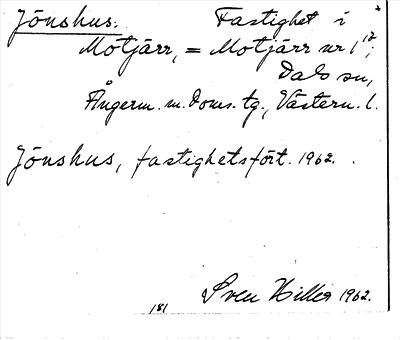 Jönshus. Fastighet i
Motjärr, = Motjärr nr 1¹²;
Dals sn,
Ångerm. m. doms. tg., Västern. l.
Jönshus, fastighetsfört. 1962.
181 Sven Hiller 1962.